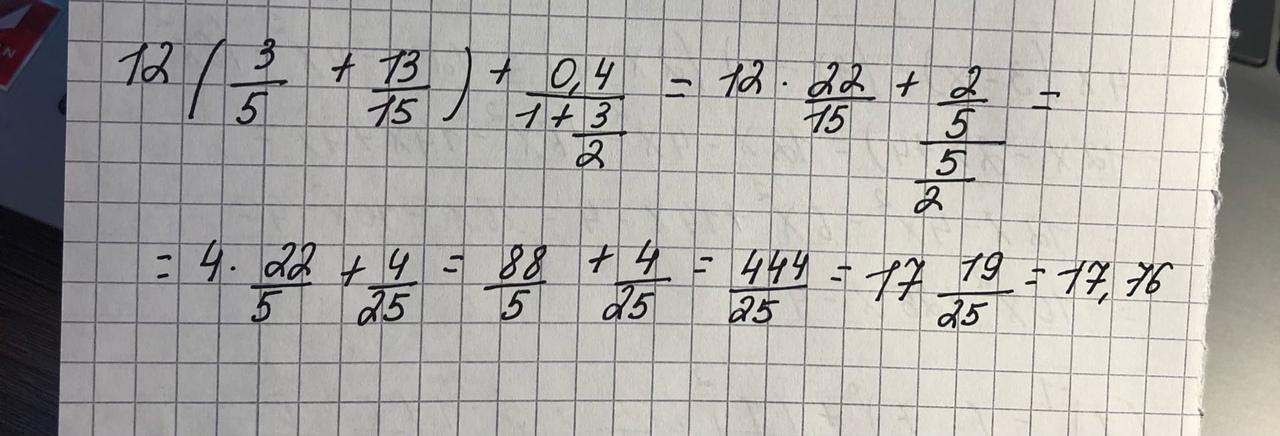 12 ( 3/5 + 13/15 ) + 0,4/(1 + 3/2) = 12 · 22/15 + (2/5)/(5/2) =
= 4 · 22/5 + 4/25 = 88/5 + 4/25 = 444/25 = 17 19/25 = 17,76